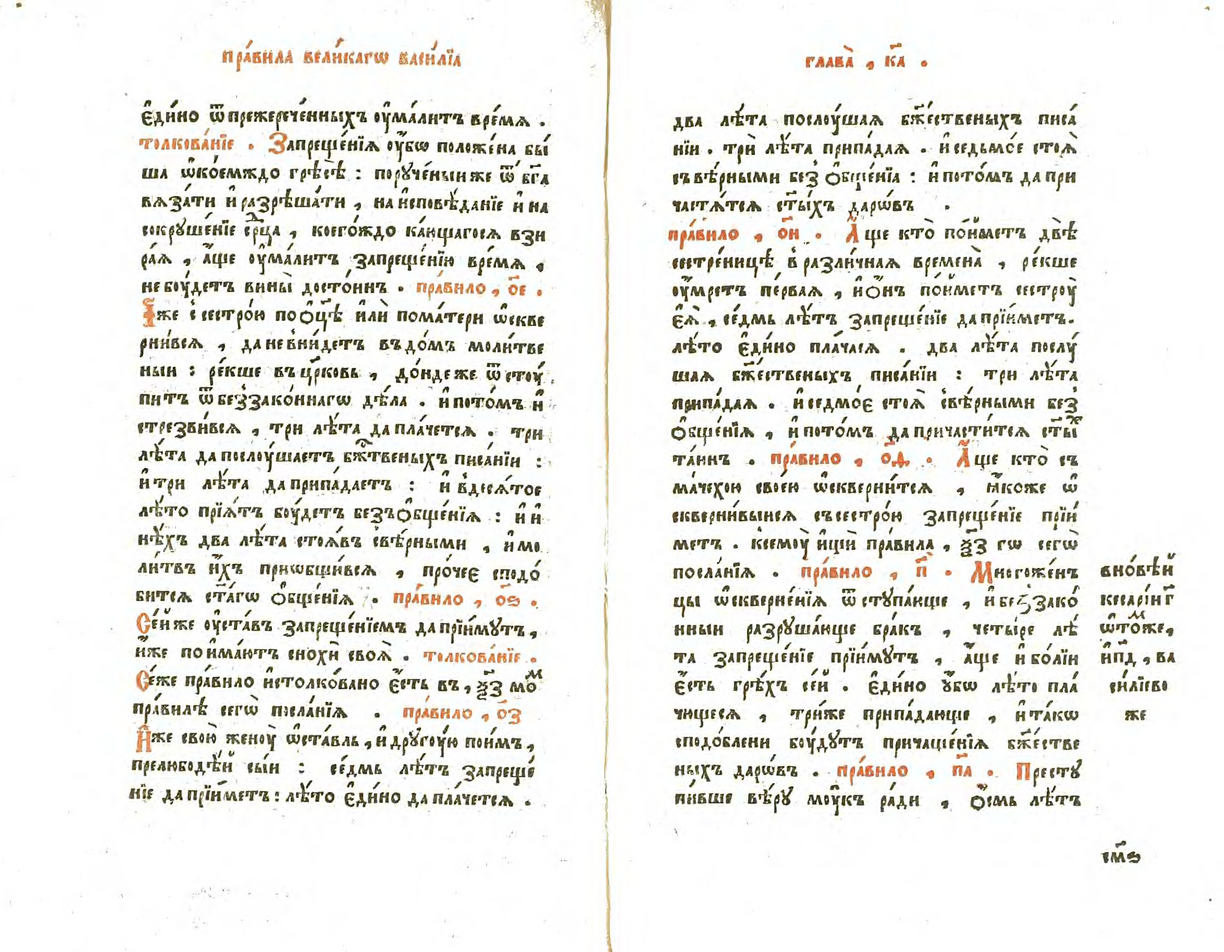 пра́вила вели́кагѡ васи́лїа
є҆ди́но ѿпрежерече́нныхъ оу҆мали́тъ вре́мѧ .
толкова́нїе . Запреще́нїѧ оу҆́бѡ положе́на бы́
ша ѡ҆кое́мждо грѣсѣ̀ : пору́ченыиже ѿ бг҃а
вѧза́ти и҆разрѣша́ти , наи҆сповѣ́данїе и҆на
сокруше́нїе се҆рⷣца , коего́ждо ка́ющагосѧ взи
ра́ѧ , а҆́ще оу҆мали́тъ запреще́нїю вре́мѧ ,
не боу́детъ вины̀ досто́инъ . пра́вило , о҃е .
И҆́же с̾сестро́ю поо҆ц҃ѣ̀ и҆лѝ пома́тери ѡ҆скве
рни́всѧ , даневни́детъ въдо́мъ моли́тве
ныи : ре́кше въцр҃ковь , до́ндеже ѿстоу́
питъ ѿбеззако́ннагѡ дѣ́ла . и҆пото́мъ и҆
стрезви́всѧ , три лѣ́та дапла́четсѧ . три
лѣ́та дапослоу́шаетъ бж҃твеныхъ писа́нїи :
и҆три лѣ́та даприпа́даетъ : и҆ вдесѧ́тое
лѣ́то прїѧ́тъ боу́детъ безъѻ҆бще́нїѧ : и҆ и҆
нѣ́хъ два лѣ́та стоѧ́въ с̾вѣ́рными , и҆мо
ли́твъ и҆́хъ приѡбщи́всѧ , про́чеє сподо́
битсѧ ст҃а́гѡ ѻ҆бще́нїѧ . пра́вило , о҃ѕ .
Се́йже оу҆ста́въ запреще́нїемъ дапрїи́мутъ ,
и҆́же поима́ютъ снохѝ своѧ̀ . толкова́нїе .
Се́же пра́вило и҆столкова́но є҆́сть въ , ѯ҃з мо̑ⷨ
пра́вилѣ сегѡ̀ посла́нїѧ . пра́вило , о҃з
И҆́же свою̀ женоу̀ ѡ҆ста́вль , и҆другоу́ю пои́мъ ,
прелюбодѣ́й сы́и : се́дмь лѣ́тъ запреще́
нїе дапрїи́метъ : лѣ́то є҆ди́но дапла́четсѧ .
глава̀ , к҃а .
два лѣ́та послоу́шаѧ бж҃е́ственыхъ писа́
нїи . трѝ лѣ́та припа́даѧ . и҆седьмо́е стоѧ̀
съвѣ́рными без̾ѻ҆бще́нїа : и҆пото́мъ дапри
частѧ́тсѧ ст҃ы́хъ даро́въ .
пра́вило , о҃и . А҆́ще кто̀ по́йметъ двѣ̀
сестрени́цѣ в̾разли́чнаѧ времена̀ , ре́кше
оу҆́мретъ пе́рваѧ , и҆ѻ́нъ по́иметъ сестроу̀
є҆ѧ̀ , се́дмь лѣ́тъ запреще́нїе дапрїи́метъ .
лѣ́то є҆ди́но пла́часѧ . два лѣ́та послу́
шаѧ бж҃е́ственыхъ писа́нїи : три лѣ́та
припа́даѧ . и҆седмо́є стоѧ̀ с̾вѣ́рными без̾
ѻ҆бще́нїѧ , и҆пото́мъ дапричасти́тсѧ ст҃ыⷯ
та́инъ . пра́вило , о҃ѳ . А҆́ще кто̀ съ
ма́чехою свое́ю ѡ҆скверни́тсѧ , ꙗ҆́коже ѡ҆
скверни́выисѧ съсестро́ю запреще́нїе прїи́
метъ . ксемоу̀ и҆щѝ пра́вила , ѯ҃з гѡ сегѡ̀
посла́нїѧ . пра́вило , п҃ . Многоже́н
цы ѡ҆скверне́нїѧ ѿступа́юще , и҆беззако́
нныи разруша́юще бра́къ , четы́ре лѣ́
та запреще́нїе прїи́мутъ , а҆́ще и҆ бо́лїи
є҆́сть грѣ́хъ се́й . є҆ди́но у҆́бѡ лѣ́то пла́
чющесѧ , три́же припа́дающе , и҆та́кѡ
сподо́блени боу́дутъ причаще́нїѧ бж҃е́стве
ныхъ даро́въ . пра́вило , п҃а . Престу
пи́вше вѣ́ру моу́къ ра́ди , ѻ҆́смь лѣ́тъ
вно́вѣй
кесарі́и г҃
ѡ҆то́мже ,
и҆п҃д , ва
си́лїево
же
см҃ѕ